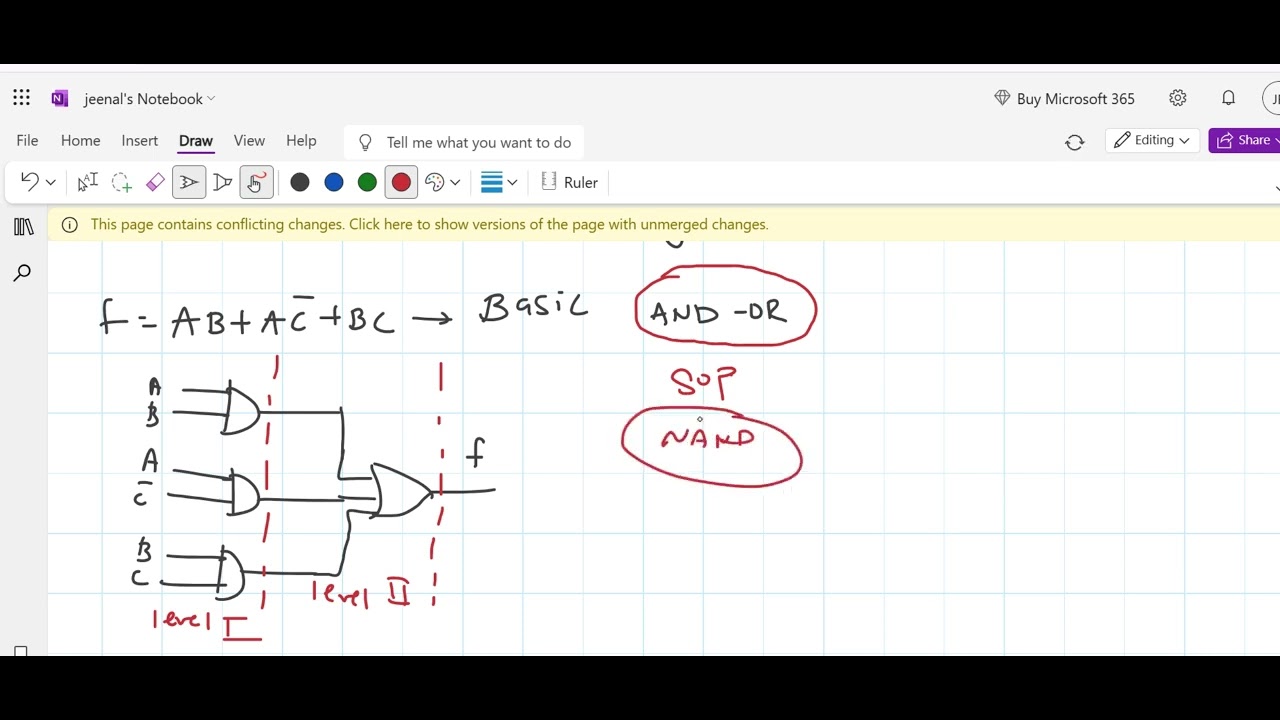 jeenal's Notebook
Buy Microsoft 365
File Home Insert Draw View Help
Tell me what you want to do
Editing
Share
Ruler
This page contains conflicting changes. Click here to show versions of the page with unmerged changes.
f = AB + AC̅ + BC → Basic
AND-OR
SOP
NAND
A
B
A
C̅
B
C
f
level I
level II